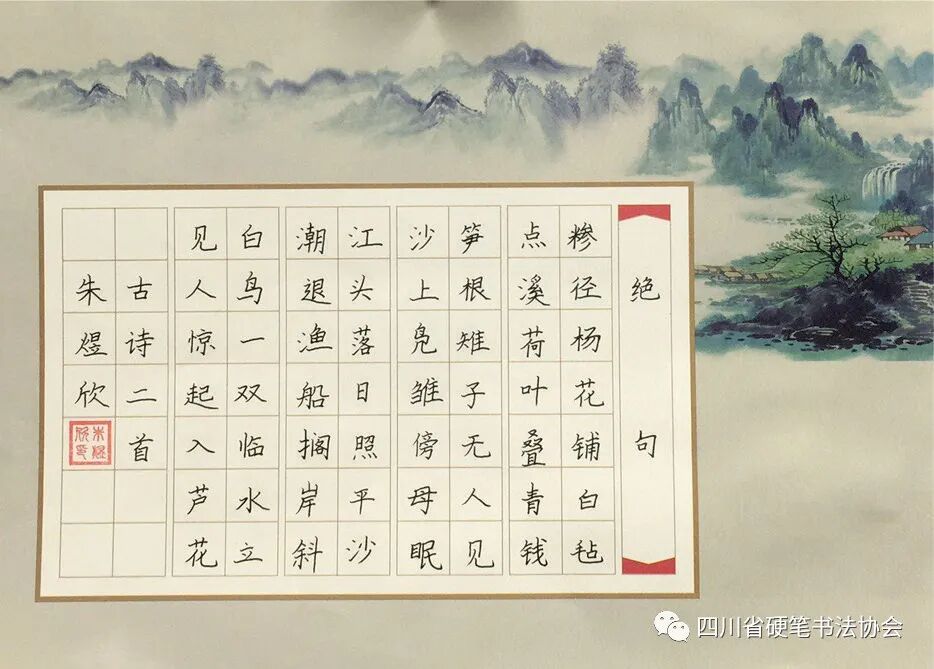 绝句
糁径杨花铺白毡
点溪荷叶叠青钱
笋根雉子无人见
沙上凫雏傍母眠
江头落日照平沙
潮退渔船搁岸斜
白鸟一双临水立
见人惊起入芦花
古诗二首
朱煜欣
四川省硬笔书法协会